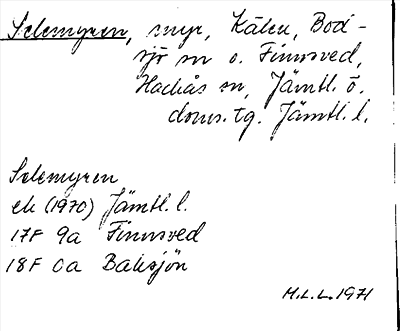 Selemyren, myr, Kälen, Bod-
sjö sn o. Finnsved,
Hackås sn, Jämtl. ö.
doms. tg. Jämtl. l.
Selemyren
ek (1970) Jämtl. l.
17F 9a Finnsved
18F 0a Baksjön
M.L.L. 1971